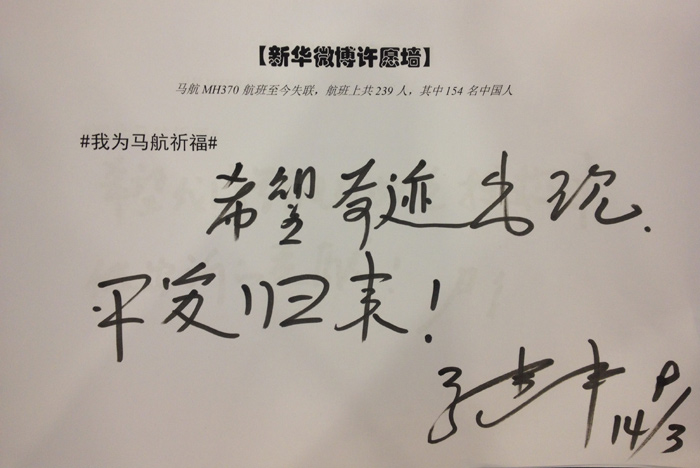 【新华微博许愿墙】
马航 MH370 航班至今失联，航班上共 239 人，其中 154 名中国人
#我为马航祈福#
希望奇迹出现.
平安归来！
14 9/3